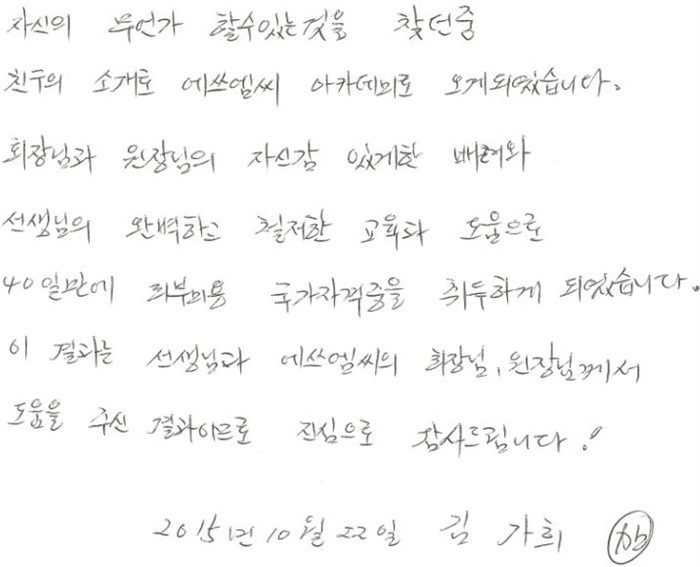 자신의 무언가 할수있는것을 찾던중
친구의 소개로 에쓰엘씨 아카데미로 오게되었습니다.
회장님과 원장님의 자신감 있게한 배려와
선생님의 완벽하고 철저한 교육과 도움으로
40일만에 피부미용 국가자격증을 취득하게 되었습니다.
이 결과는 선생님과 에쓰엘씨의 회장님, 원장님께서
도움을 주신 결과이므로 진심으로 감사드립니다!
2015년 10월 22일 김가희